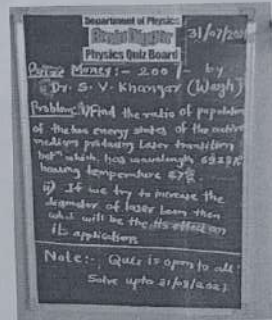 Department of Physics
31/07/202
Physics Quiz Board
Prize Money:- 200/- by
Dr. S. V. Khangar (Wagh)
Problem: i) Find the ratio of population
of the two energy states of the active
medium producing laser transition
which has wavelength
having temperature 27°C.
ii) If we try to increase the
diameter of laser beam then
what will be the its effect on
its application
Note:- Ques is open to all
Solve upto 31/08/2023